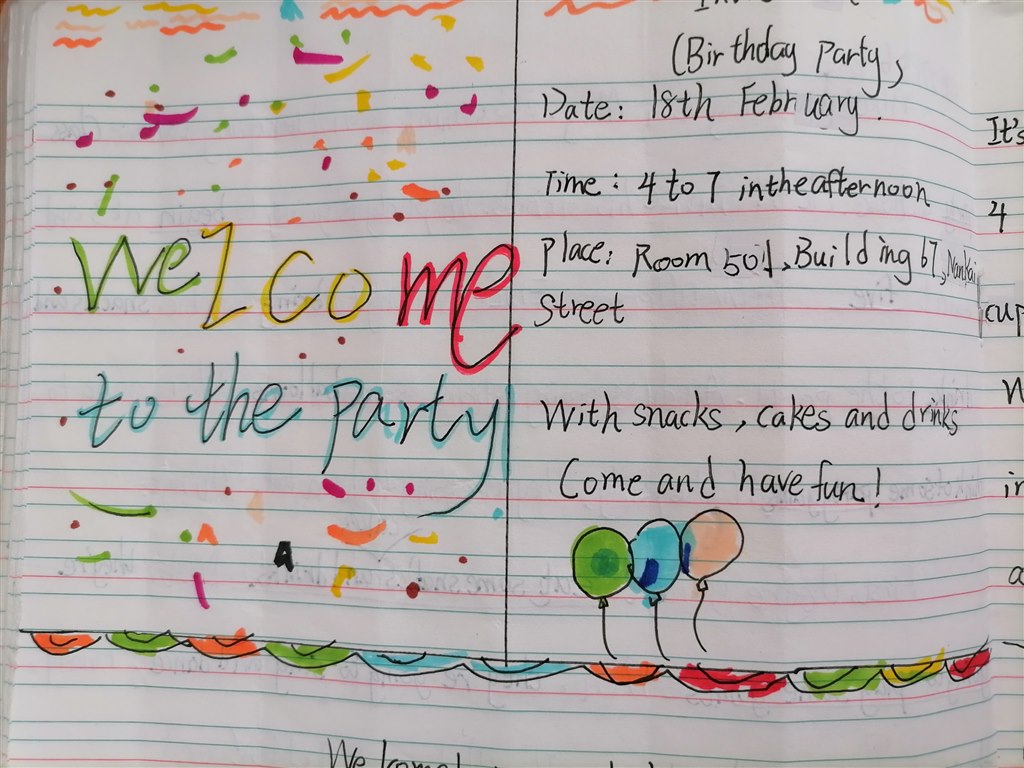 Welcome
to the party
(Birthday Party)
Date: 18th February.
Time: 4 to 7 in the afternoon
Place: Room 501, Building 67, Nankai
Street
With snacks, cakes and drinks
Come and have fun!
It's
4
cup
in
Welcome